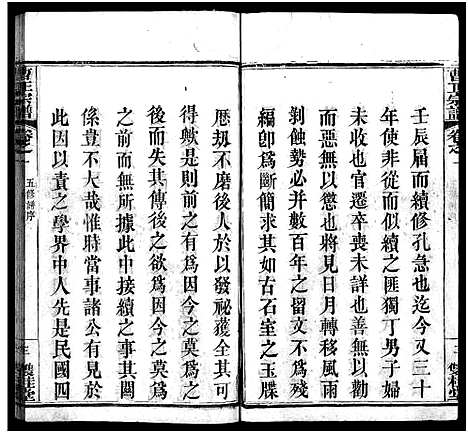 壬辰屆而續修孔急也迄今又三十
年使非從而似續之匪獨丁男子婦
生者也出者也遷卒喪未詳無以勸
而惡無以懲也將見日月轉移風雨
剝蝕而並數百年之留文不具
編卽爲斷簡求其如古石室之玉牒
曹氏宗譜
卷之一
五修譜序
雙桂堂
歷刼不磨後人於以發祕獲全其可
得歟是則古之莫爲因今之莫爲
而失為其傳後之欲爲因今之莫爲
之前而無所據此中接續之事其關
係豈不大哉惟時當事諸公有見於
此因以責之學界中人先是民國四